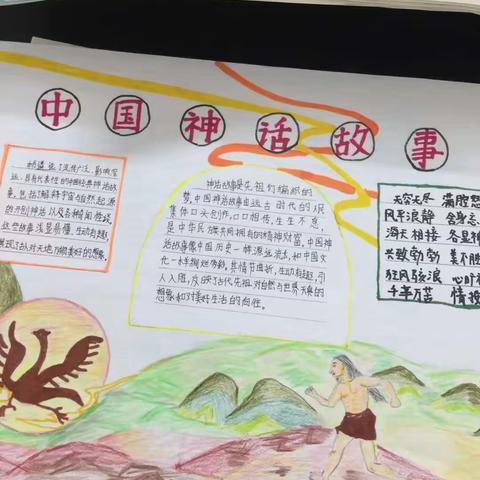 中国神话故事
流传广泛、影响深
远、具有代表性的中国经典神话故
事,包括了解释宇宙与自然起源
的开创神话以及各种闻传说,
这些故事浅显易懂、生动有趣,
展现了古人对天地万物美好的想象。
神话故事是先祖们编织的
梦,中国神话故事由远古时代的人民
集体口头创作,口口相传,生生不息,
是中华民族共同拥有的精神财富。中国神
话故事像中国历史一样源远流长,和中国文
化一样斑斓多姿。其情节曲折,生动有趣,引
人入胜,反映了古代先祖对自然与世界天真的
想象和对美好生活的向往。
无穷无尽 满腔怒
风平浪静
海天相接 各显神
兴致勃勃 美不胜
狂风骇浪 心旷神
千辛万苦 情投